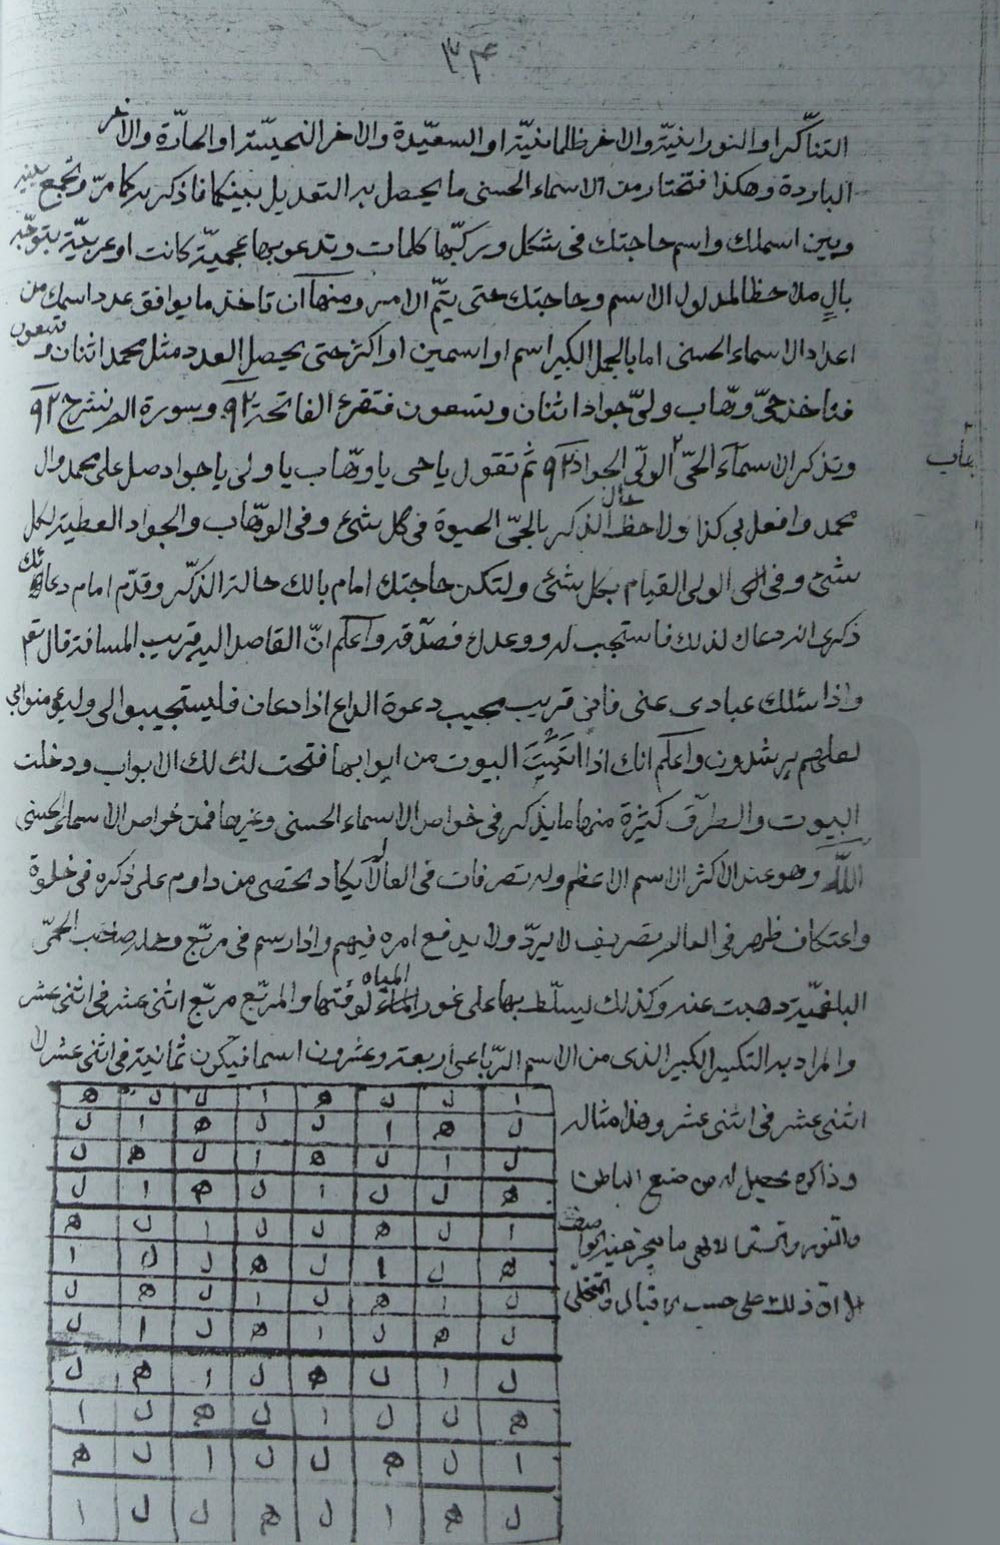 ٣۴
التناكر او النورانيّة والاخر ظلمانيّة او السعيّدة والاخر النحيسّة او الحارّة والاخر
الباردة وهكذا فتختار من الاسماء الحسنى ما يحصل به التعديل بينكما فاذكر به كما مرّ وتجمع بينه
وبين اسملك واسم حاجتك فى شكل وركّبها كلمات وتدعو بها عجميّة كانت او عربيّة بتوجّه
بالٍ ملاحظا لمدلول الاسم وحاجتك حتى يتمّ الامر ومنها ان تاخذ ما يوافق عدد اسمك من
اعداد الاسماء الحسنى اما بالجمل الكبير اسم او اسمين او اكثر حتى يحصل العدد مثل محمد اثنان وتسعون
فتاخذ حىّ وهّاب ولىّ جواد اثنان وتسعون فتقرء الفاتحة ٩٢ وسورة الم نشرح ٩٢
وتذكر الاسماء الحىّ الولىّ الجواد ٩٢ ثم تقول يا حى يا وهّاب يا ولى يا جواد صل على محمد وال
هّاب
محمد وافعل بى كذا ولاحظ حال الذكر بالحىّ الحيوة فى كل شىء وفى الوهّاب والجواد العطية لكل
شىء وفى الولى القيام بكل شىء ولتكن حاجتك امام بالك حالة الذكر وقدّم امام دعائك
ذكرى انه دعاك لذلك فاستجب له ووعدك فصدّقه واعلم انّ القاصد اليه قريب المسافة قال تعم
واذا سئلك عبادى عنى فانى قريب مجيب دعوة الداع اذا دعان فليستجيبوا لى وليؤمنوا بى
لعلهم يرشدون واعلم انك اذا اتيت البيوت من ابوابها فتحت لك الابواب ودخلت
البيوت والطرق كثيرة منها ما يذكر فى خواص الاسماء الحسنى وغيرها فمن خواص الاسماء الحسنى
اللّه وهو عند الاكثر الاسم الاعظم وله تصرفات فى العالم لا يكاد تحصى من داوم على ذكره فى خلوة
واعتكاف ظهر فى العالم بتصريف لا يردّ ولا يدفع امره فيهم واذا رسم فى مربّع وحمله صاحب الحمّى
البلغميّة ذهبت عنه وكذلك يسلّط بها على غور المياه لوقتها والمربّع مربّع اثنى عشر فى اثنى عشر
والمراد به التكسير الكبير الذى من الاسم الرّباعى اربعة وعشرون اسما فيكون ثمانية فى اثنى عشر لا
اثنى عشر فى اثنى عشر وهذا مثاله
وذاكره يحصل له من صنع الباطن
والتنوير ما يعجز عنه الواصف
الا ان ذلك على حسب الاقبال والتخلى
ا ل ل ه ا ل ل ه
ل ه ا ل ل ه ا ل
ل ا ل ه ا ل ه ل
ه ل ل ا ل ه ا ل
ا ل ه ل ل ا ل ه
ه ل ا ل ه ل ل ا
ل ا ه ل ا ل ه ل
ل ه ل ا ه ل ا ل
ل ا ل ه ل ا ه ل
ه ل ل ا ل ه ل ا
ا ل ه ل ل ا ل ه
ل ه ا ل ه ل ل ا